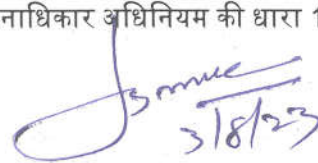 नाधिकार अधिनियम की धारा 1
3/8/23